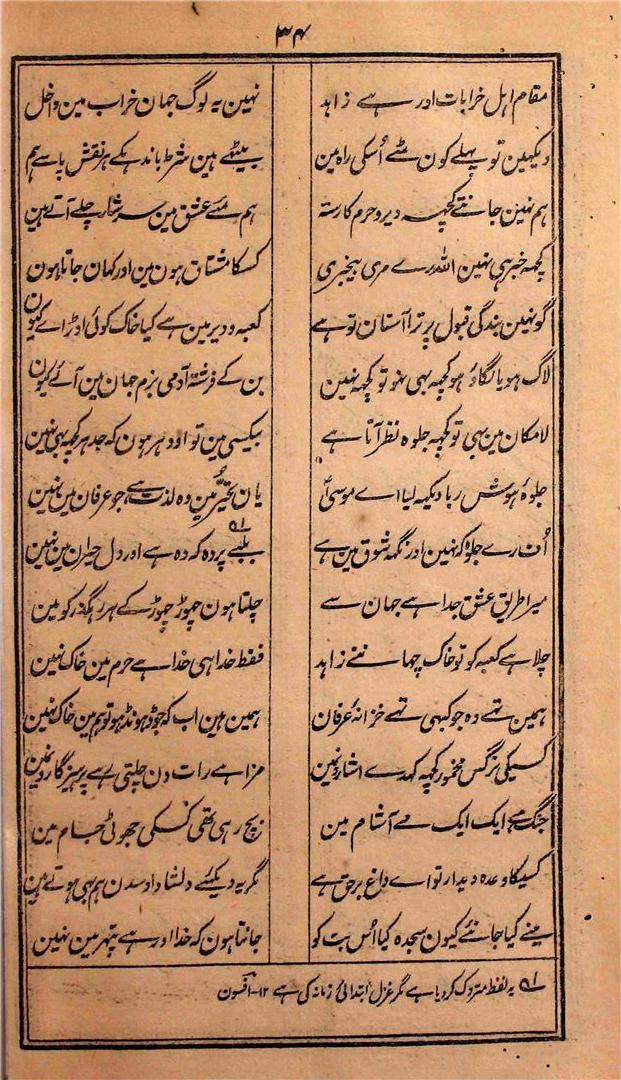 ۳۴
مقام اہل خرابات اور ہے زاہد نہین یہ لوگ جہان خراب مین داخل
دیکہین تو پہلے کون مٹے اُسکی راہ مین بیٹہے ہین شرط باندہکے ہر نقش پا سے ہم
ہم نہین جانتے کچہہ دیر و حرم کا رستہ ہم مئے عشق مین سرشار چلے آتے ہین
کچہہ خبر ہی نہین اللہ رے مری بیخبری کسکا مشتاق ہون مین اور کہان جاتا ہون
گو نہین بندگی قبول پر ترا آستان تو ہے کعبہ و دیر مین ہے کیا خاک کوئی اوڑائے کیون
لاگ ہو یا لگاؤ ہو کچہہ بہی نہو تو کچہہ نہین بن کے فرشتہ آدمی بزم جہان مین آئے کیون
لامکان مین بہی تو کچہہ جلوہ نظر آتا ہے بیکسی مین تو اودہر ہون کہ جدہر کچہہ بہی نہین
جلوۂ ہوش ربا دیکہہ لیا اے موسیٰؑ یان تحیّر مین وہ لذت ہے جو عرفان مین نہین
اُف رے جلوہ کہ نہین اور نگہہ شوق مین ہے بلبے پردہ کہ وہ ہے اور دل حیران مین نہین
میرا طریق عشق جدا ہے جہان سے چلتا ہون چہوڑ چہوڑ کے ہر رہگذر کو مین
چلا ہے کعبہ کو تو خاک چہاننے زاہد فقط خدا ہی خدا ہے حرم مین خاک نہین
ہمین تہے وہ جو کبہی تہے خزانۂ عرفان ہمین ہین اب کہ جو ڈہونڈہو تو ہم مین خاک نہین
کسیکی نرگس مخمور کچہہ کہدے اشارونمین مزا ہے رات دن چلتی رہے پرہیزگارونمین
جنگ ہے ایک ایک مے آشام مین بچ رہی تھی کسکی جہوٹی جام مین
کسیکا وعدہ دیدار تو اے داغ برحق ہے مگر یہ دیکئے دلشاد اوسدن ہم بہی ہوتے ہین
مینے کیا جانئے کیون سجدہ کیا اُس بت کو جانتا ہون کہ خدا اور ہے پتہر مین نہین
؎۱ یہ لفظ متروک کر دیا ہے مگر غزل ابتدائی زمانہ کی ہے ۱۲-افسون